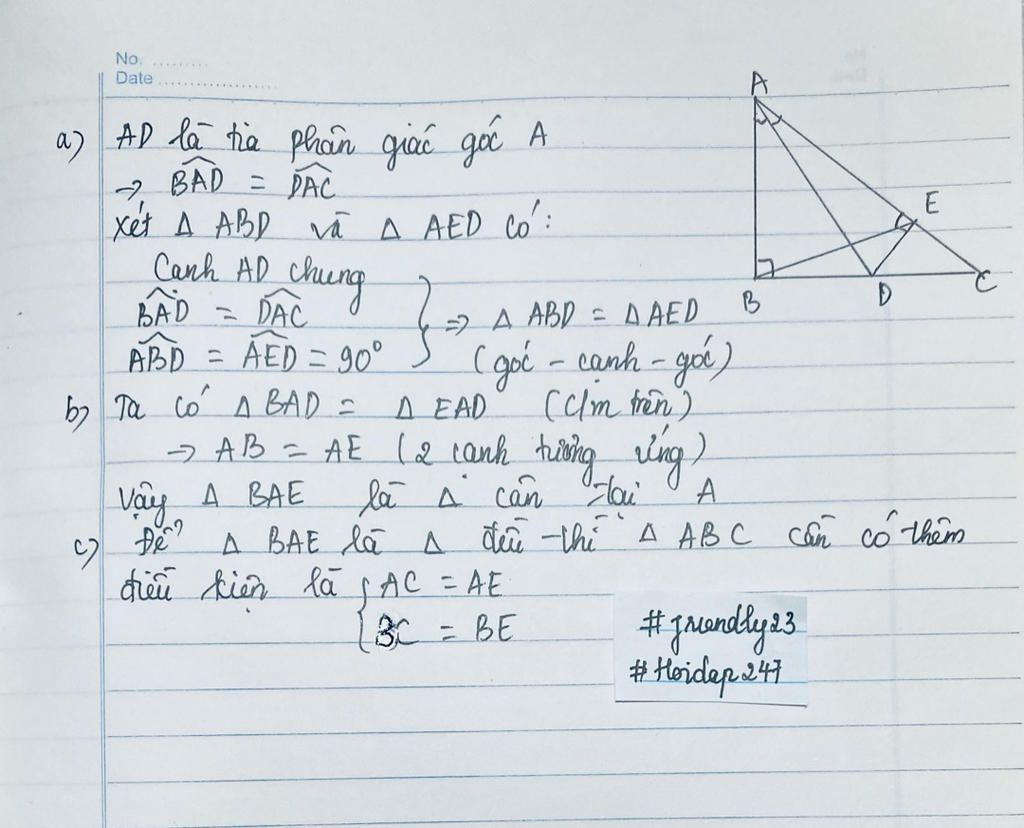 No. .........
Date ....................
a) AD là tia phân giác góc A
→ BAD = DAC
xét Δ ABD và Δ AED có:
Cạnh AD chung
BAD = DAC
ABD = AED = 90°
⇒ Δ ABD = Δ AED
(góc - cạnh - góc)
b) Ta có Δ BAD = Δ EAD (c/m trên)
→ AB = AE (2 cạnh tương ứng)
Vậy Δ BAE là Δ cân tại A
c) Để Δ BAE là Δ đều thì Δ ABC cần có thêm
điều kiện là { AC = AE
BC = BE
A
E
B
D
C
# friendly23
# Hoidap247